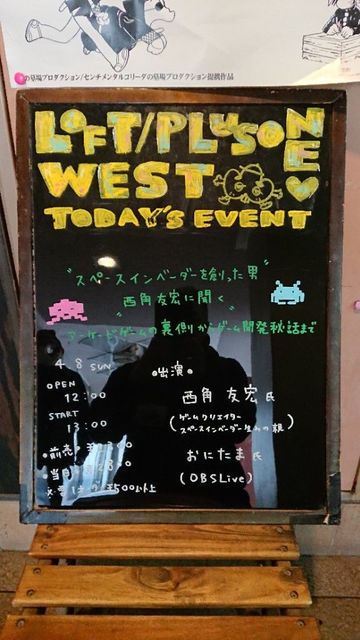 の墓場プロダクション/センチメンタルコリーダの墓場プロダクション提携作品
LOFT/PLUSONE
WEST
TODAY'S EVENT
"スペースインベーダーを創った男
西角友宏に聞く"
アーケードゲームの裏側からゲーム開発秘話まで
4.8 SUN
OPEN
12:00
START
13:00
出演
西角 友宏 氏
(ゲームクリエイター
スペースインベーダー生みの親)
おにたま 氏
(OBSLive)
前売
当日
¥500以上